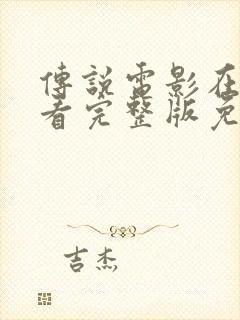 傳說電影在
看完整版免
吉杰